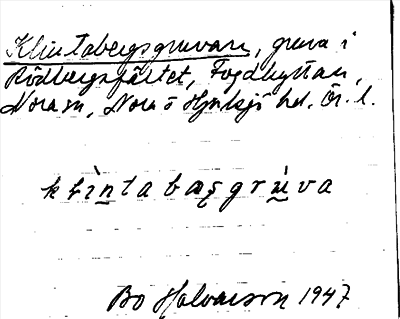 Klintabergsgruvan, gruva i
Rödbergsfältet, Fogdhyttan,
Nora sn, Nora o Hjulsjö hd. Ör. l.
klìntabaṣgrùva
Bo Halvarson 1947